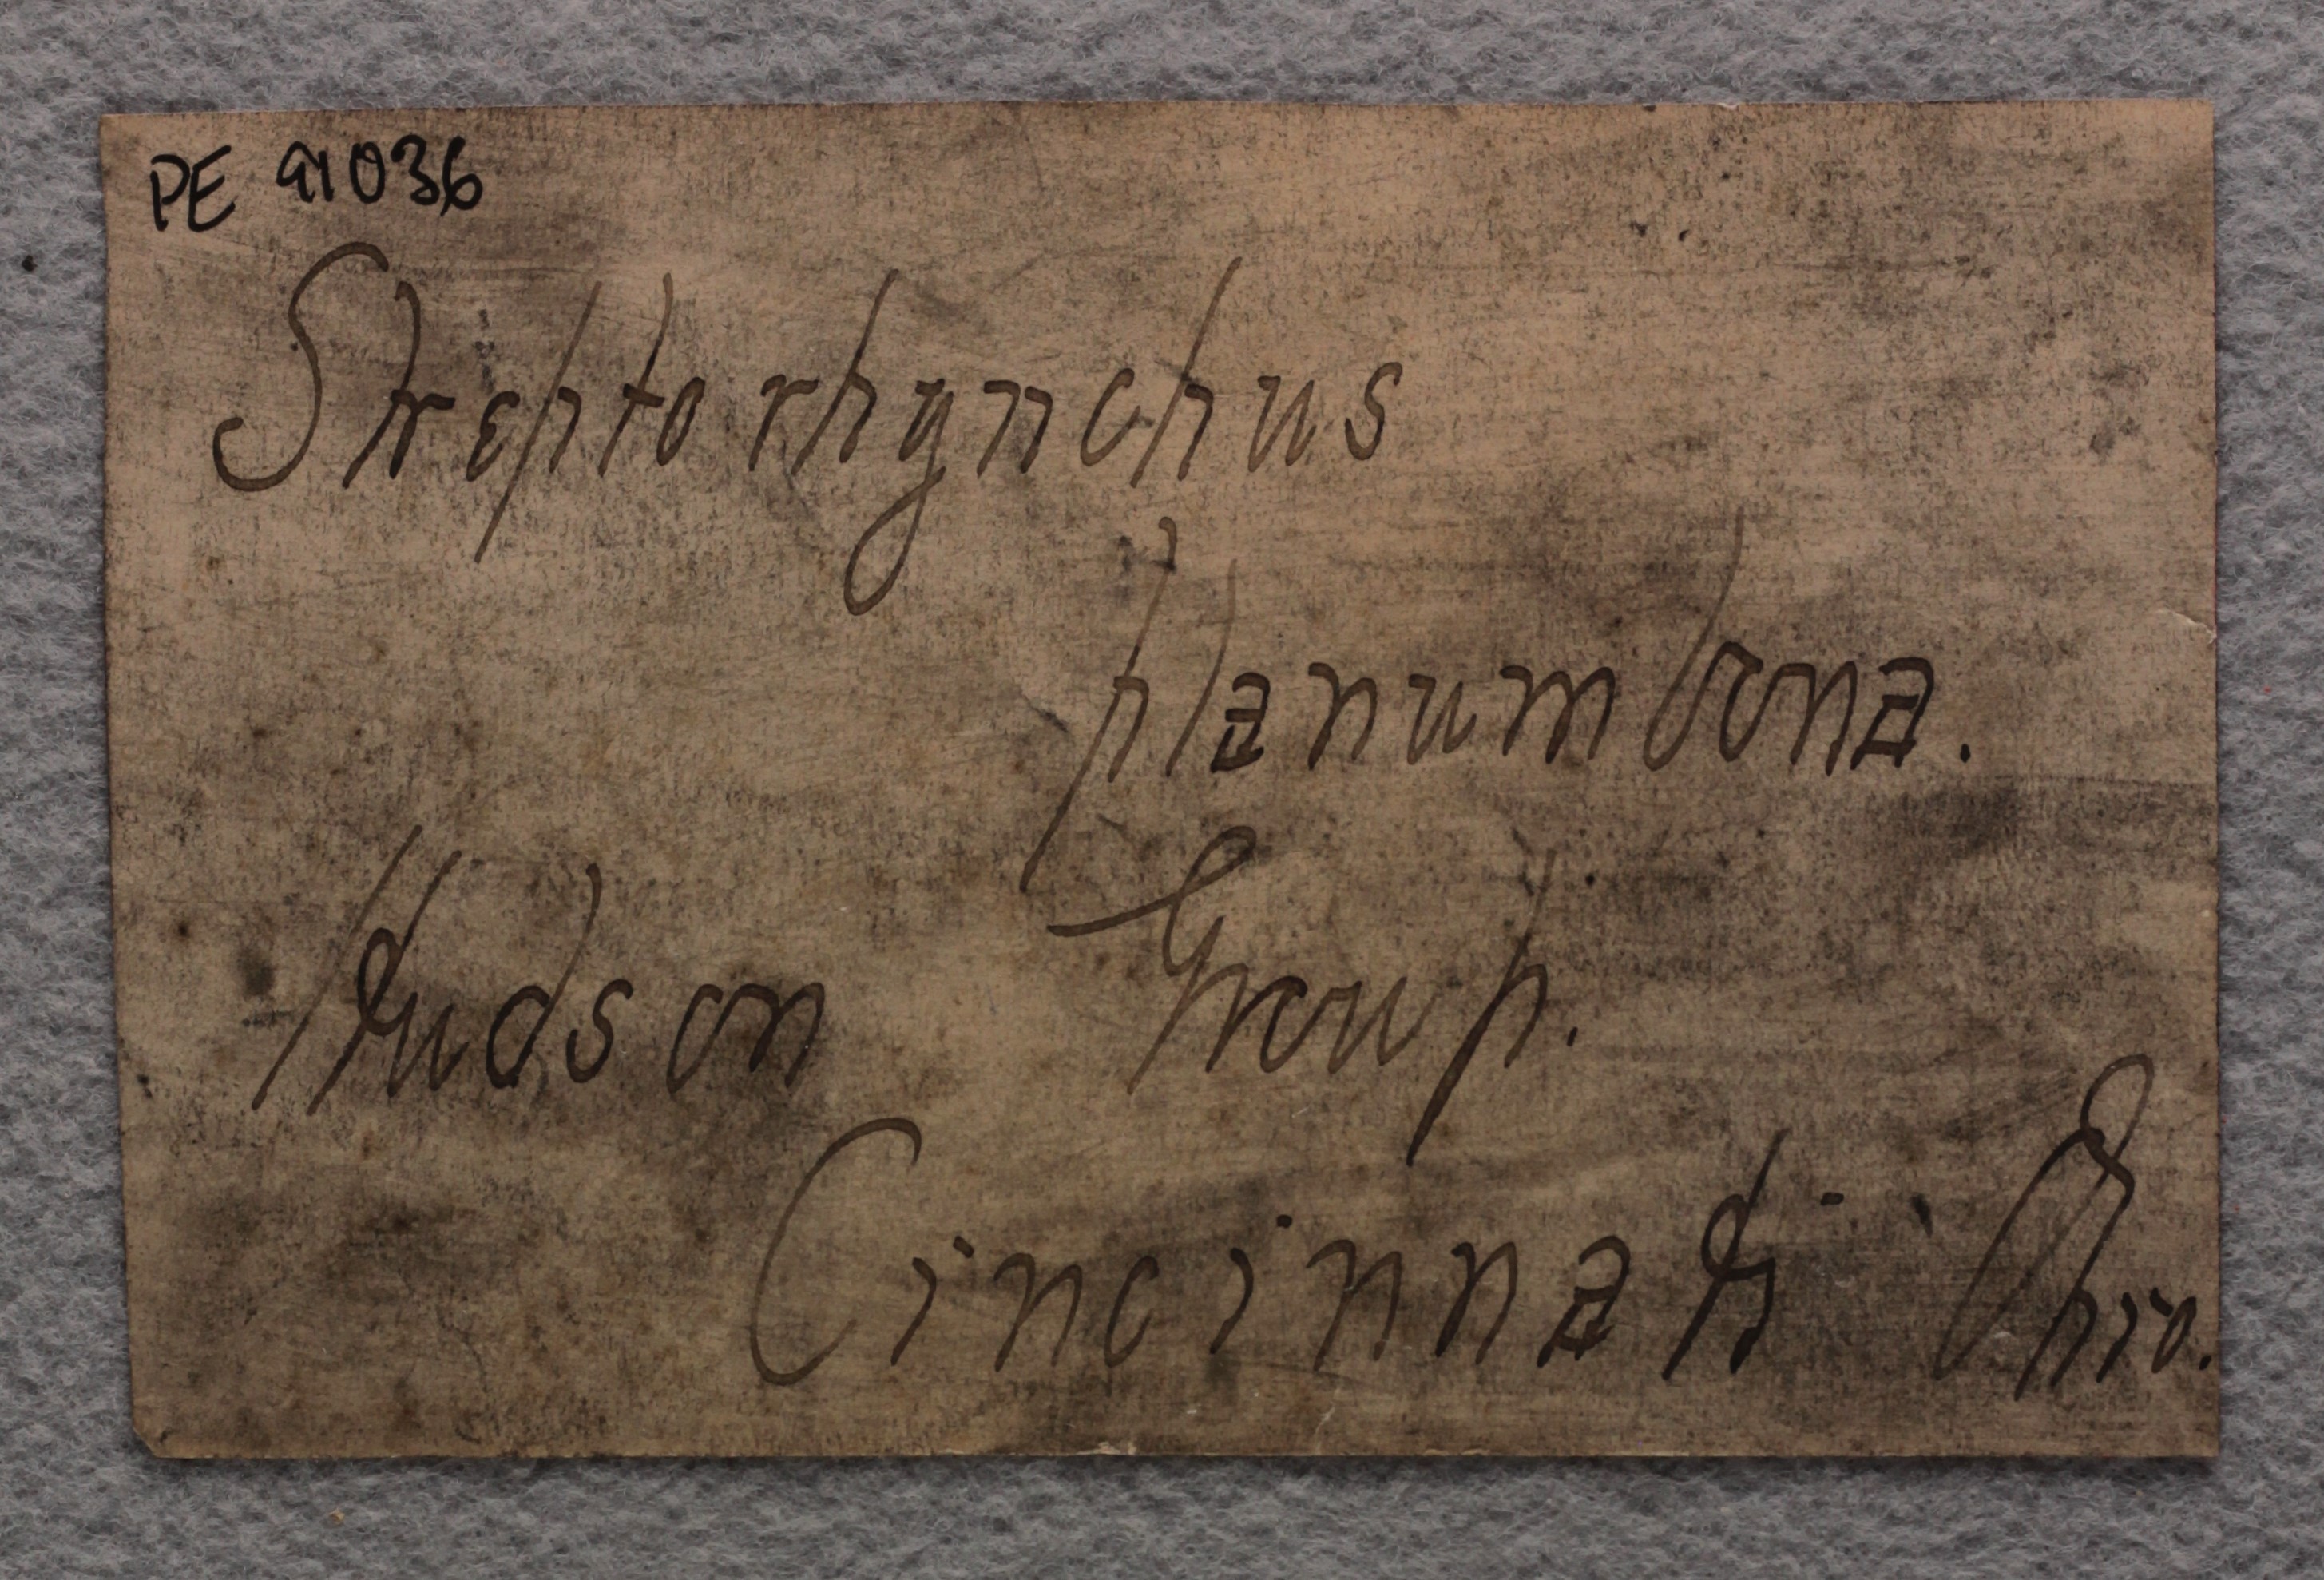 PE 91036
Streptorhynchus
planumbona.
Hudson Group.
Cincinnati Ohio.